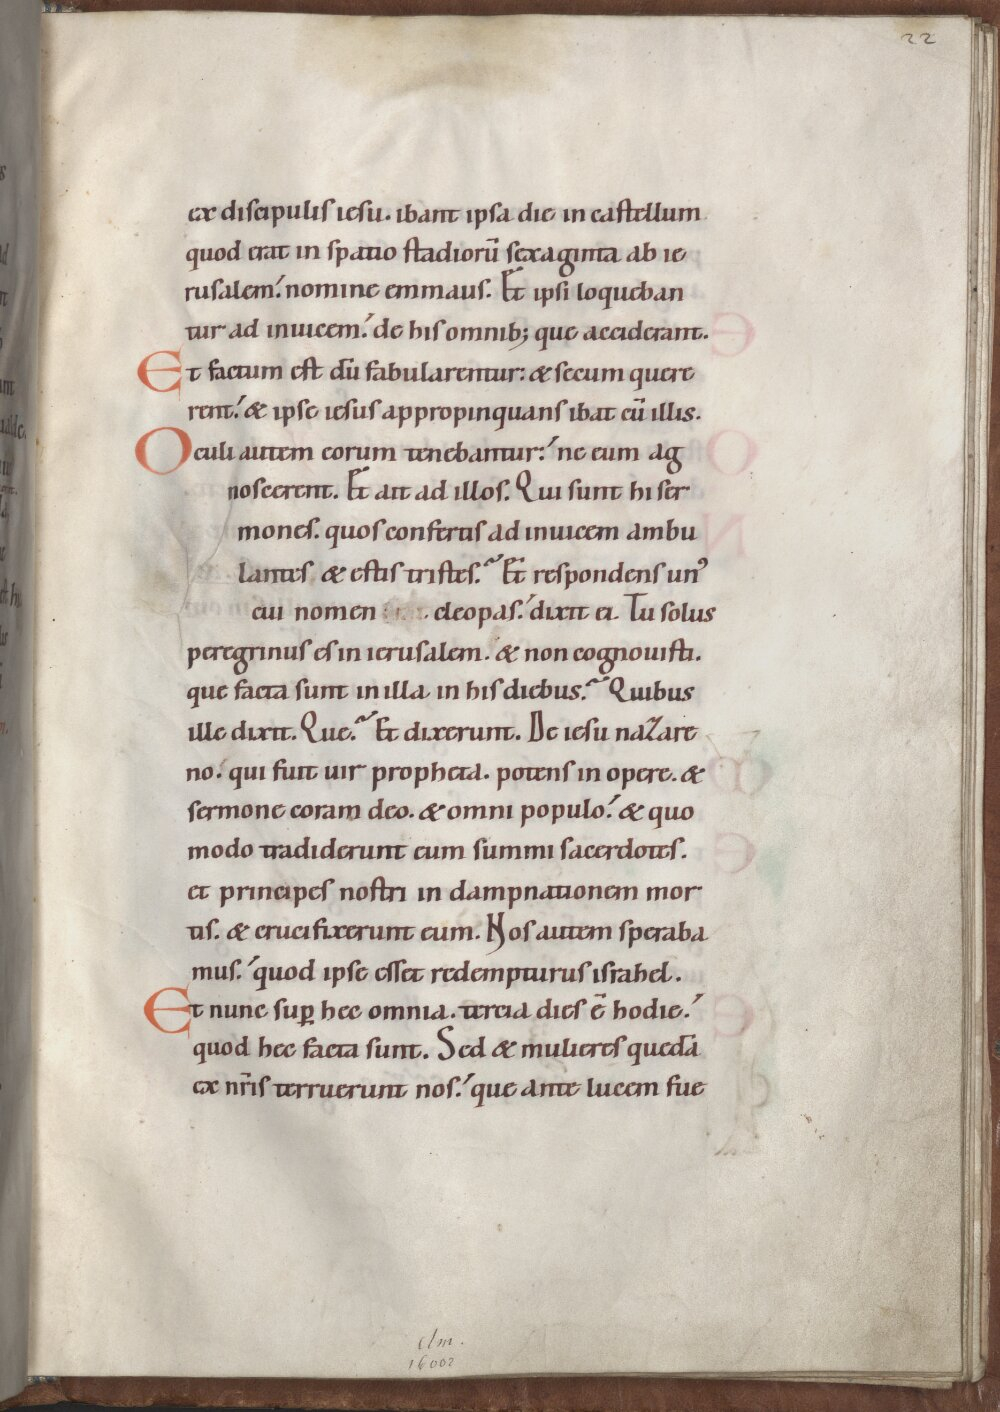 22
ex discipulis iesu. ibant ipsa die in castellum
quod erat in spatio stadiorū sexaginta ab ie
rusalem. nomine emmaus. Et ipsi loqueban
tur ad inuicem. de his omnib; que acciderant.
Et factum est dū fabularentur: & secum quere
rent. & ipse iesus appropinquans ibat cū illis.
Oculi autem eorum tenebantur: ne eum ag
noscerent. Et ait ad illos. Qui sunt hi ser
mones. quos confertis ad inuicem ambu
lantes & estis tristes. Et respondens unꝰ
cui nomen cleopas. dixit ei. Tu solus
peregrinus es in ierusalem. & non cognouisti.
que facta sunt in illa in his diebus. Quibus
ille dixit. Que. Et dixerunt. De iesu nazare
no. qui fuit uir propheta. potens in opere. &
sermone coram deo. & omni populo. & quo
modo tradiderunt eum summi sacerdotes.
et principes nostri in dampnationem mor
tis. & crucifixerunt eum. Nos autem speraba
mus. quod ipse esset redempturus israhel.
Et nunc sup̲ hec omnia. tercia dies ē hodie.
quod hec facta sunt. Sed & mulieres quedā
ex nr̄is terruerunt nos. que ante lucem fue
clm.
16002